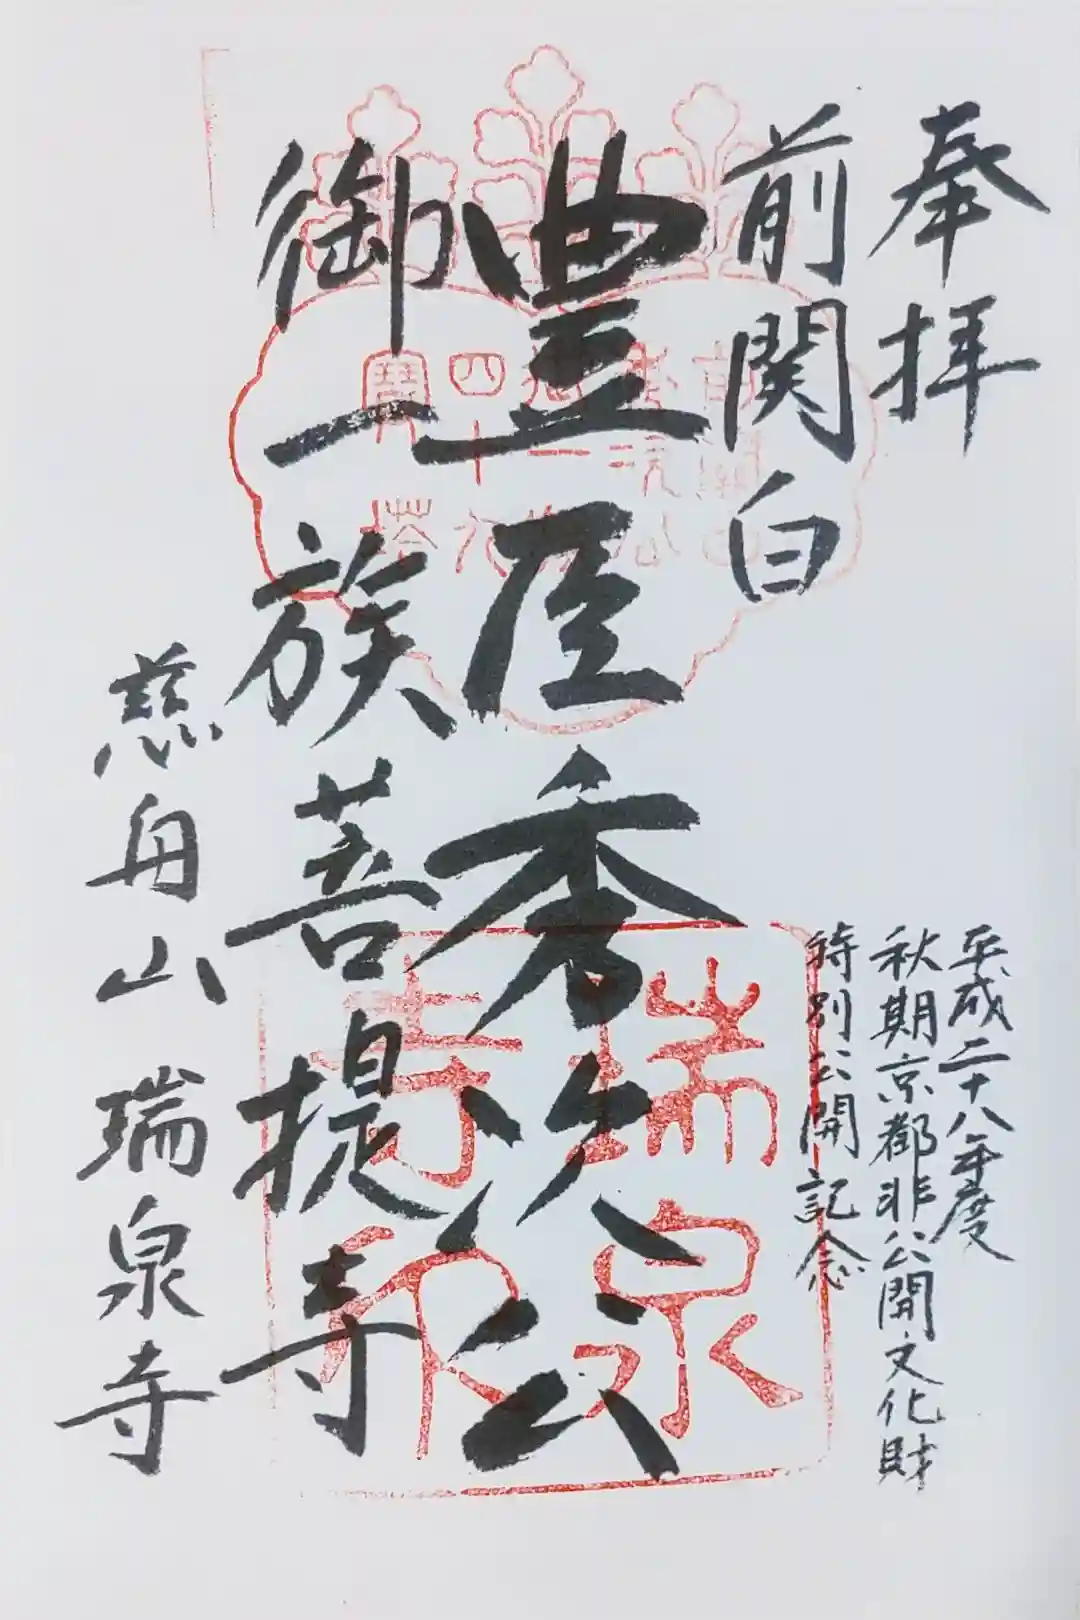 奉拝
前関白
平成二十八年度
秋期京都非公開文化財
特別公開記念
豊臣秀次公
御一族菩提寺
慈舟山 瑞泉寺
瑞泉
寺印